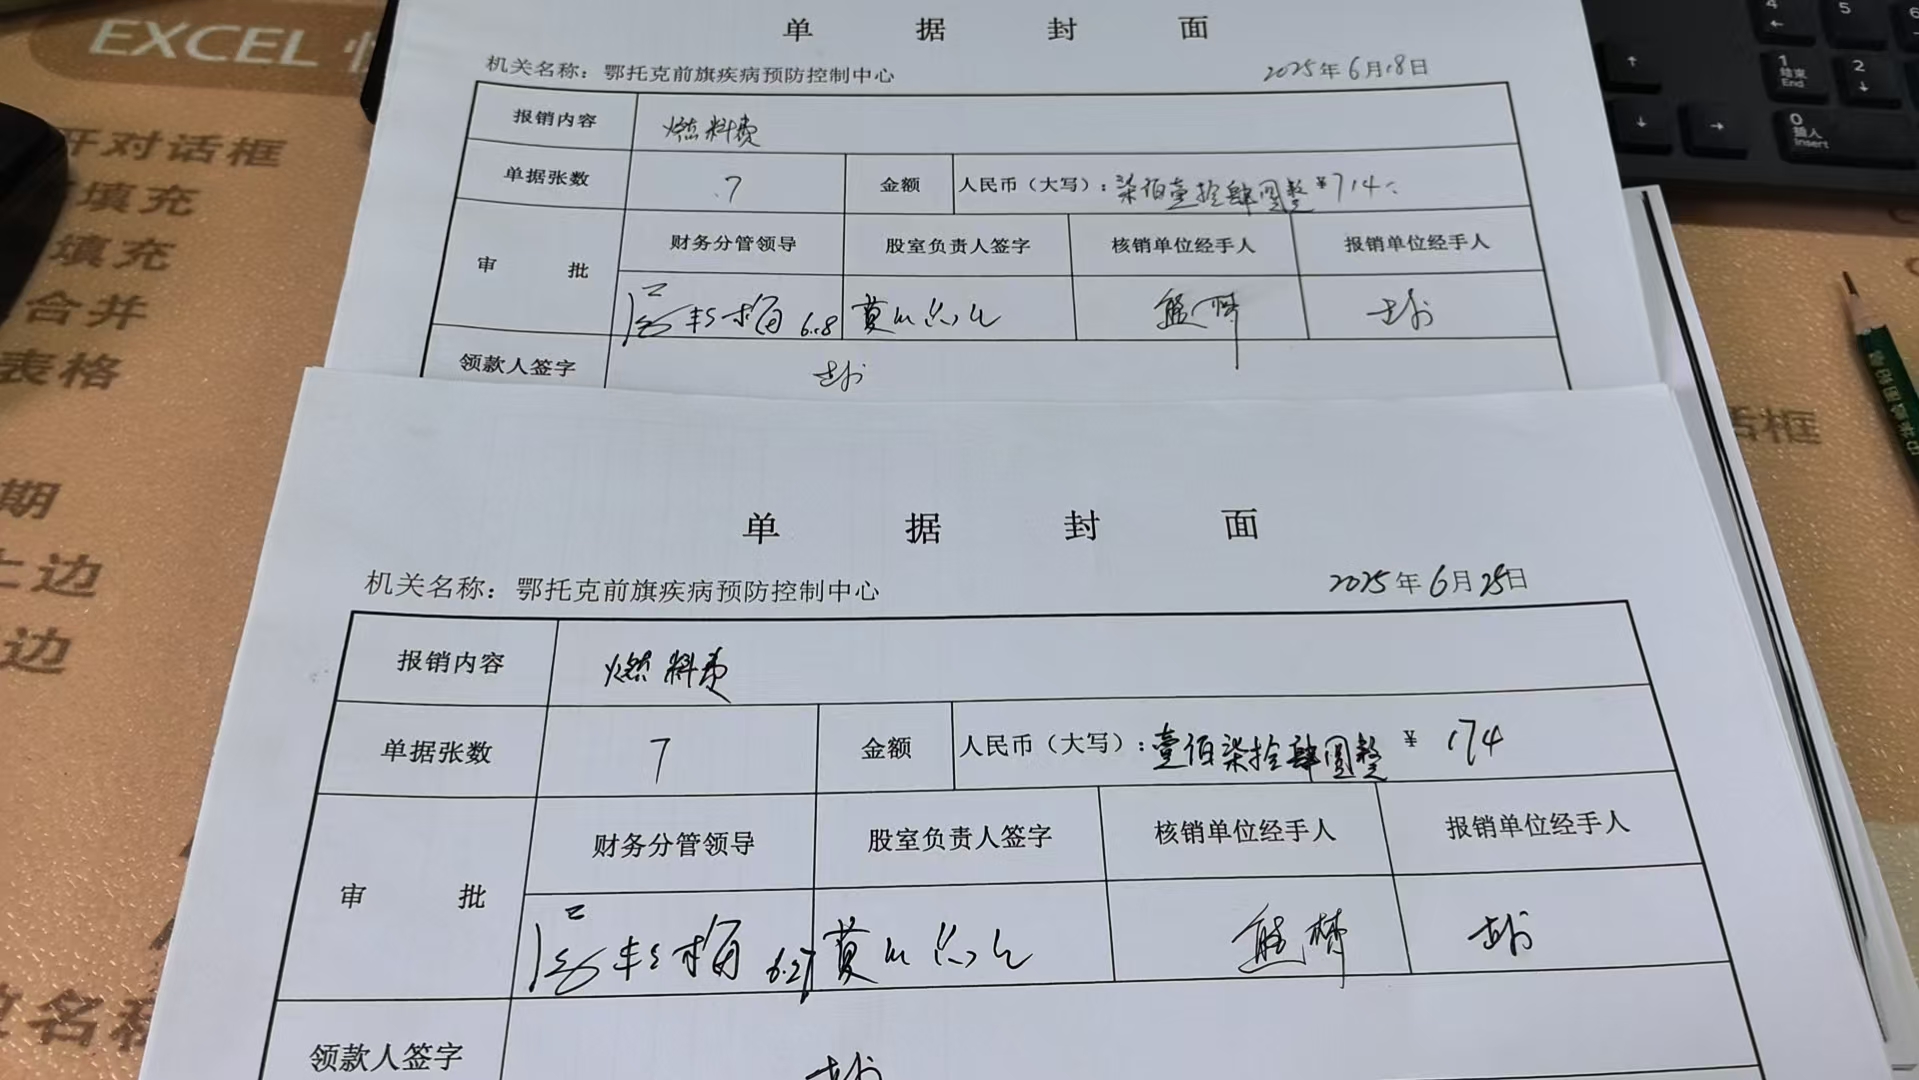 EXCEL
单据封面
机关名称：鄂托克前旗疾病预防控制中心 2025年6月18日
报销内容 燃料费
单据张数 7 金额 人民币（大写）：柒佰壹拾肆圆整 ¥714
审批 财务分管领导 股室负责人签字 核销单位经手人 报销单位经手人
6.18
领款人签字
单据封面
机关名称：鄂托克前旗疾病预防控制中心 2025年6月25日
报销内容 燃料费
单据张数 7 金额 人民币（大写）：壹佰柒拾肆圆整 ¥ 174
审批 财务分管领导 股室负责人签字 核销单位经手人 报销单位经手人
6.27
领款人签字
开对话框
填充
填充
合并
表格
期
上边
边
名称
话框
4
←
5
6
↑
1
结束
End
2
↓
↓
→
0
插入
Insert